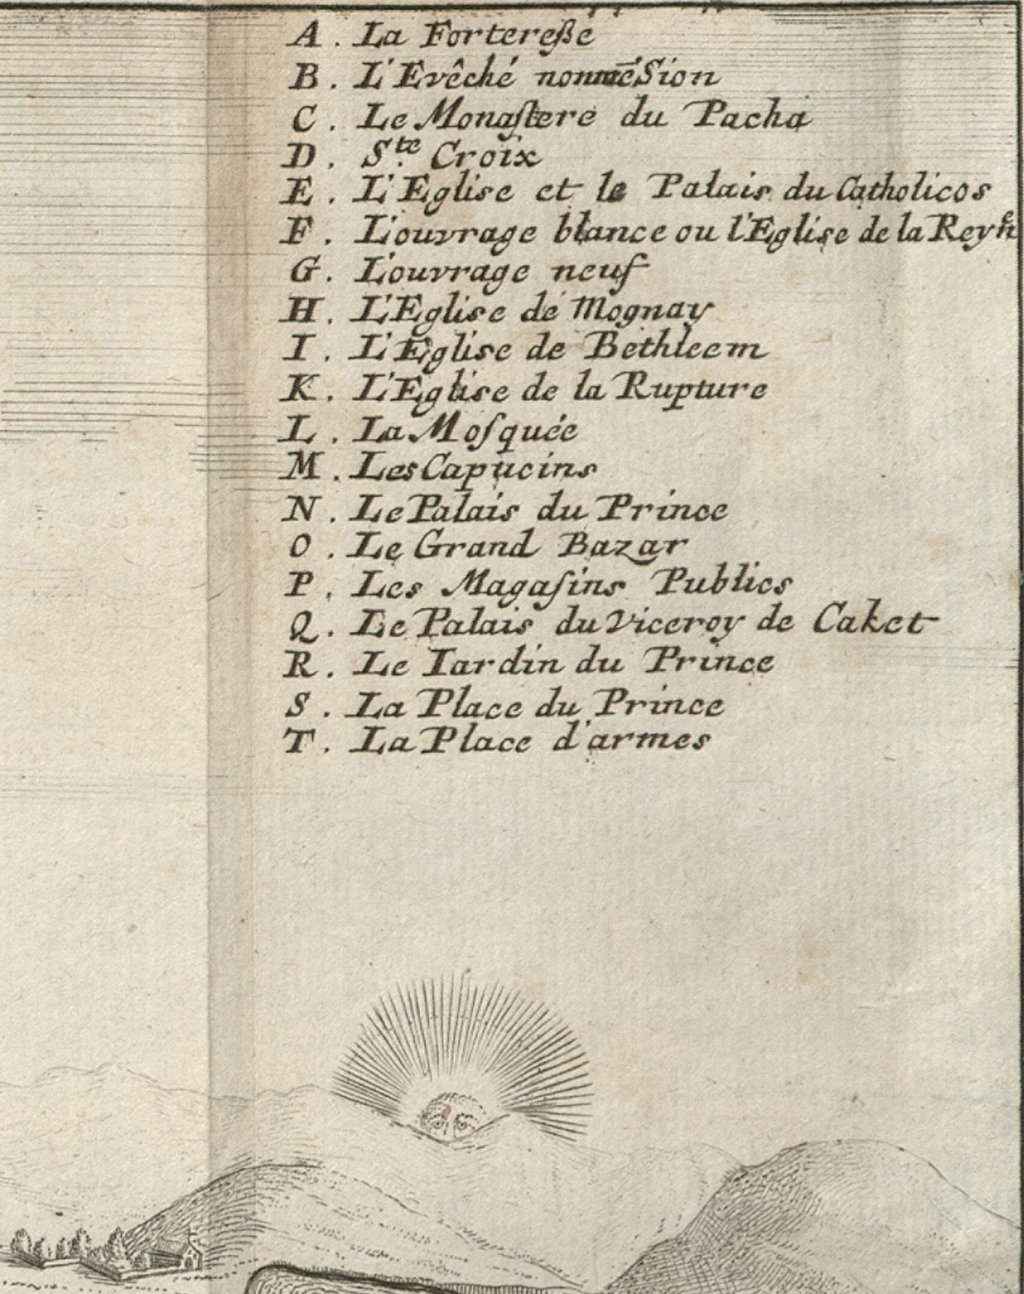 A. La Fortereße
B. L'Evêché nommé Sion
C. Le Monastere du Pacha
D. Ste Croix
E. L'Eglise et le Palais du Catholicos
F. L'ouvrage blance ou l'Eglise de la Reyh
G. L'ouvrage neuf
H. L'Eglise de Mognay
I. L'Eglise de Bethleem
K. L'Eglise de la Rupture
L. La Mosquée
M. Les Capucins
N. Le Palais du Prince
O. Le Grand Bazar
P. Les Magasins Publics
Q. Le Palais du Viceroy de Caket
R. Le Iardin du Prince
S. La Place du Prince
T. La Place d'armes